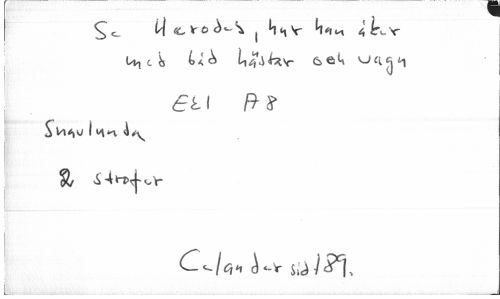 Se Herodes, hur han åker
med båd hästar och vagn
EEI A8
Snavlunda
2 strofer
Calander sid 189.